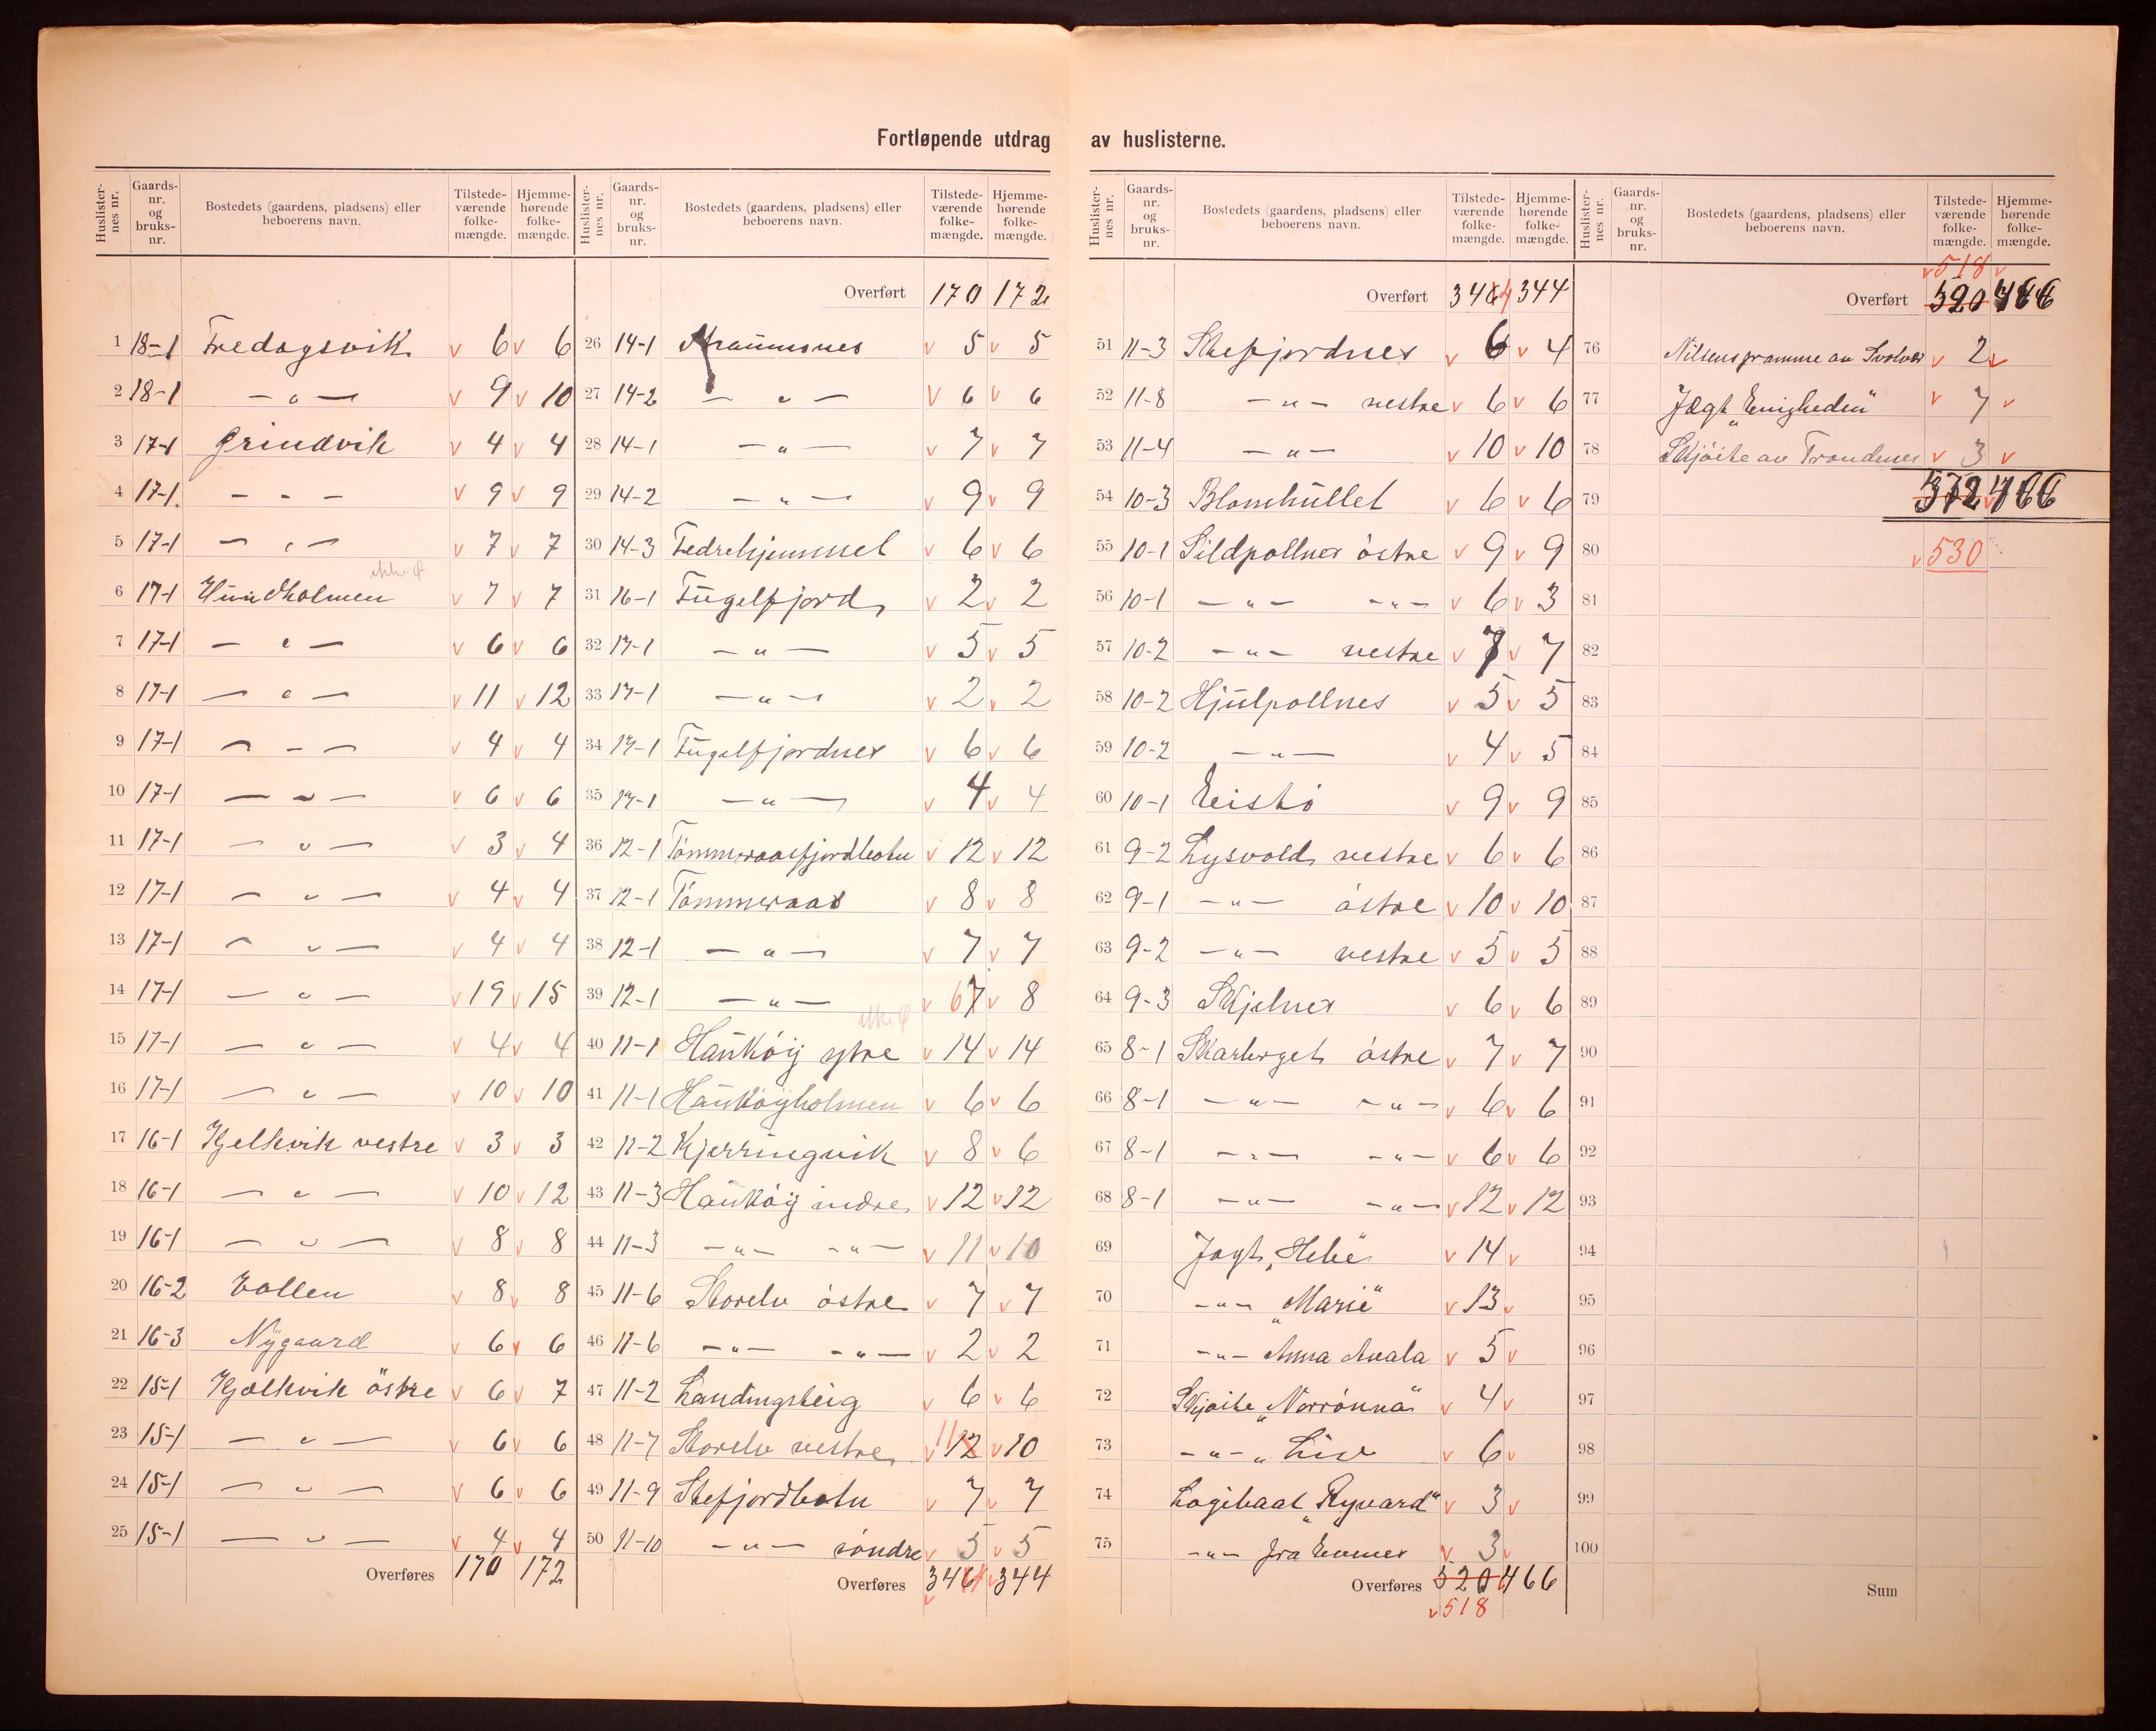 Fortløpende utdrag av huslisternе.
Huslister-nes nr. Gaards-nr. og bruks-nr. Bostedets (gaardens, pladsens) eller beboerens navn. Tilstede-værende folke-mængde. Hjemme-hørende folke-mængde.
1 18-1 Fredagsvik v 6 v 6
2 18-1 — " — v 9 v 10
3 17-1 Grindvik v 4 v 4
4 17-1 - - - v 9 v 9
5 17-1 — " — v 7 v 7
6 17-1 Hundholmen v 7 v 7
7 17-1 — " — v 6 v 6
8 17-1 — " — v 11 v 12
9 17-1 — - — v 4 v 4
10 17-1 — " — v 6 v 6
11 17-1 — " — v 3 v 4
12 17-1 — " — v 4 v 4
13 17-1 — " — v 4 v 4
14 17-1 — " — v 19 v 15
15 17-1 — " — v 4 v 4
16 17-1 — " — v 10 v 10
17 16-1 Kjelkvik vestre v 3 v 3
18 16-1 — " — v 10 v 12
19 16-1 — " — v 8 v 8
20 16-2 Vollen v 8 v 8
21 16-3 Nygaard v 6 v 6
22 15-1 Kjælkvik östre v 6 v 7
23 15-1 — " — v 6 v 6
24 15-1 — " — v 6 v 6
25 15-1 — " — v 4 v 4
Overføres 170 172
Huslister-nes nr. Gaards-nr. og bruks-nr. Bostedets (gaardens, pladsens) eller beboerens navn. Tilstede-værende folke-mængde. Hjemme-hørende folke-mængde.
Overført 170 172
26 14-1 v 5 v 5
27 14-2 — " — v 6 v 6
28 14-1 — " — v 7 v 7
29 14-2 — " — v 9 v 9
30 14-3 Fedrehjemmet v 6 v 6
31 16-1 Fuglfjord v 2 v 2
32 17-1 — " — v 5 v 5
33 17-1 — " — v 2 v 2
34 17-1 Fuglfjordnes v 6 v 6
35 17-1 — " — v 4 v 4
36 12-1 Tömmeraasfjordbotn v 12 v 12
37 12-1 Tömmeraas v 8 v 8
38 12-1 — " — v 7 v 7
39 12-1 — " — v 67 v 8
40 11-1 Haukøy ytre v 14 v 14
41 11-1 Haukøyholmen v 6 v 6
42 11-2 Kjerringvik v 8 v 6
43 11-3 Haukøy indre v 12 v 12
44 11-3 — " — — " — v 11 v 10
45 11-6 Storelv östre v 7 v 7
46 11-6 — " — — " — v 2 v 2
47 11-2 Landingsteig v 6 v 6
48 11-7 Storelv vestre v 11 12 v 10
49 11-9 Stefjordbotn v 7 v 7
50 11-10 — " — söndre v 5 v 5
Overføres 346 4 v 344
Huslister-nes nr. Gaards-nr. og bruks-nr. Bostedets (gaardens, pladsens) eller beboerens navn. Tilstede-værende folke-mængde. Hjemme-hørende folke-mængde.
Overført 346 4 344
51 11-3 Stefjordnes v 6 v 4
52 11-8 — " — vestre v 6 v 6
53 11-4 — " — v 10 v 10
54 10-3 Blomhullet v 6 v 6
55 10-1 Sildpollnes östre v 9 v 9
56 10-1 — " — — " — v 6 v 3
57 10-2 — " — vestre v 7 v 7
58 10-2 Hjulpollnes v 5 v 5
59 10-2 — " — v 4 v 5
60 10-1 v 9 v 9
61 9-2 Lysvold vestre v 6 v 6
62 9-1 — " — östre v 10 v 10
63 9-2 — " — vestre v 5 v 5
64 9-3 Skjelnes v 6 v 6
65 8-1 Skarberget östre v 7 v 7
66 8-1 — " — — " — v 6 v 6
67 8-1 — " — — " — v 6 v 6
68 8-1 — " — — " — v 12 v 12
69 Jagt „Hebe" v 14 v
70 — " — „Marie" v 13 v
71 — " — Anna Avala v 5 v
72 Skjöite „Norrönna" v 4 v
73 — " — „Liv v 6 v
74 Logibaat „Ryvard" v 3 v
75 — " — fra v 3 v
Overføres 520 466
v 518
Huslister-nes nr. Gaards-nr. og bruks-nr. Bostedets (gaardens, pladsens) eller beboerens navn. Tilstede-værende folke-mængde. Hjemme-hørende folke-mængde.
v 518 v
Overført 520 466
76 Nilsens pramme av Svolvær v 2 v
77 Jægt „Enigheden" v 7 v
78 Skjöite av Trondenes v 3 v
79 532 v 466
80 v 530
81
82
83
84
85
86
87
88
89
90
91
92
93
94
95
96
97
98
99
100
Sum